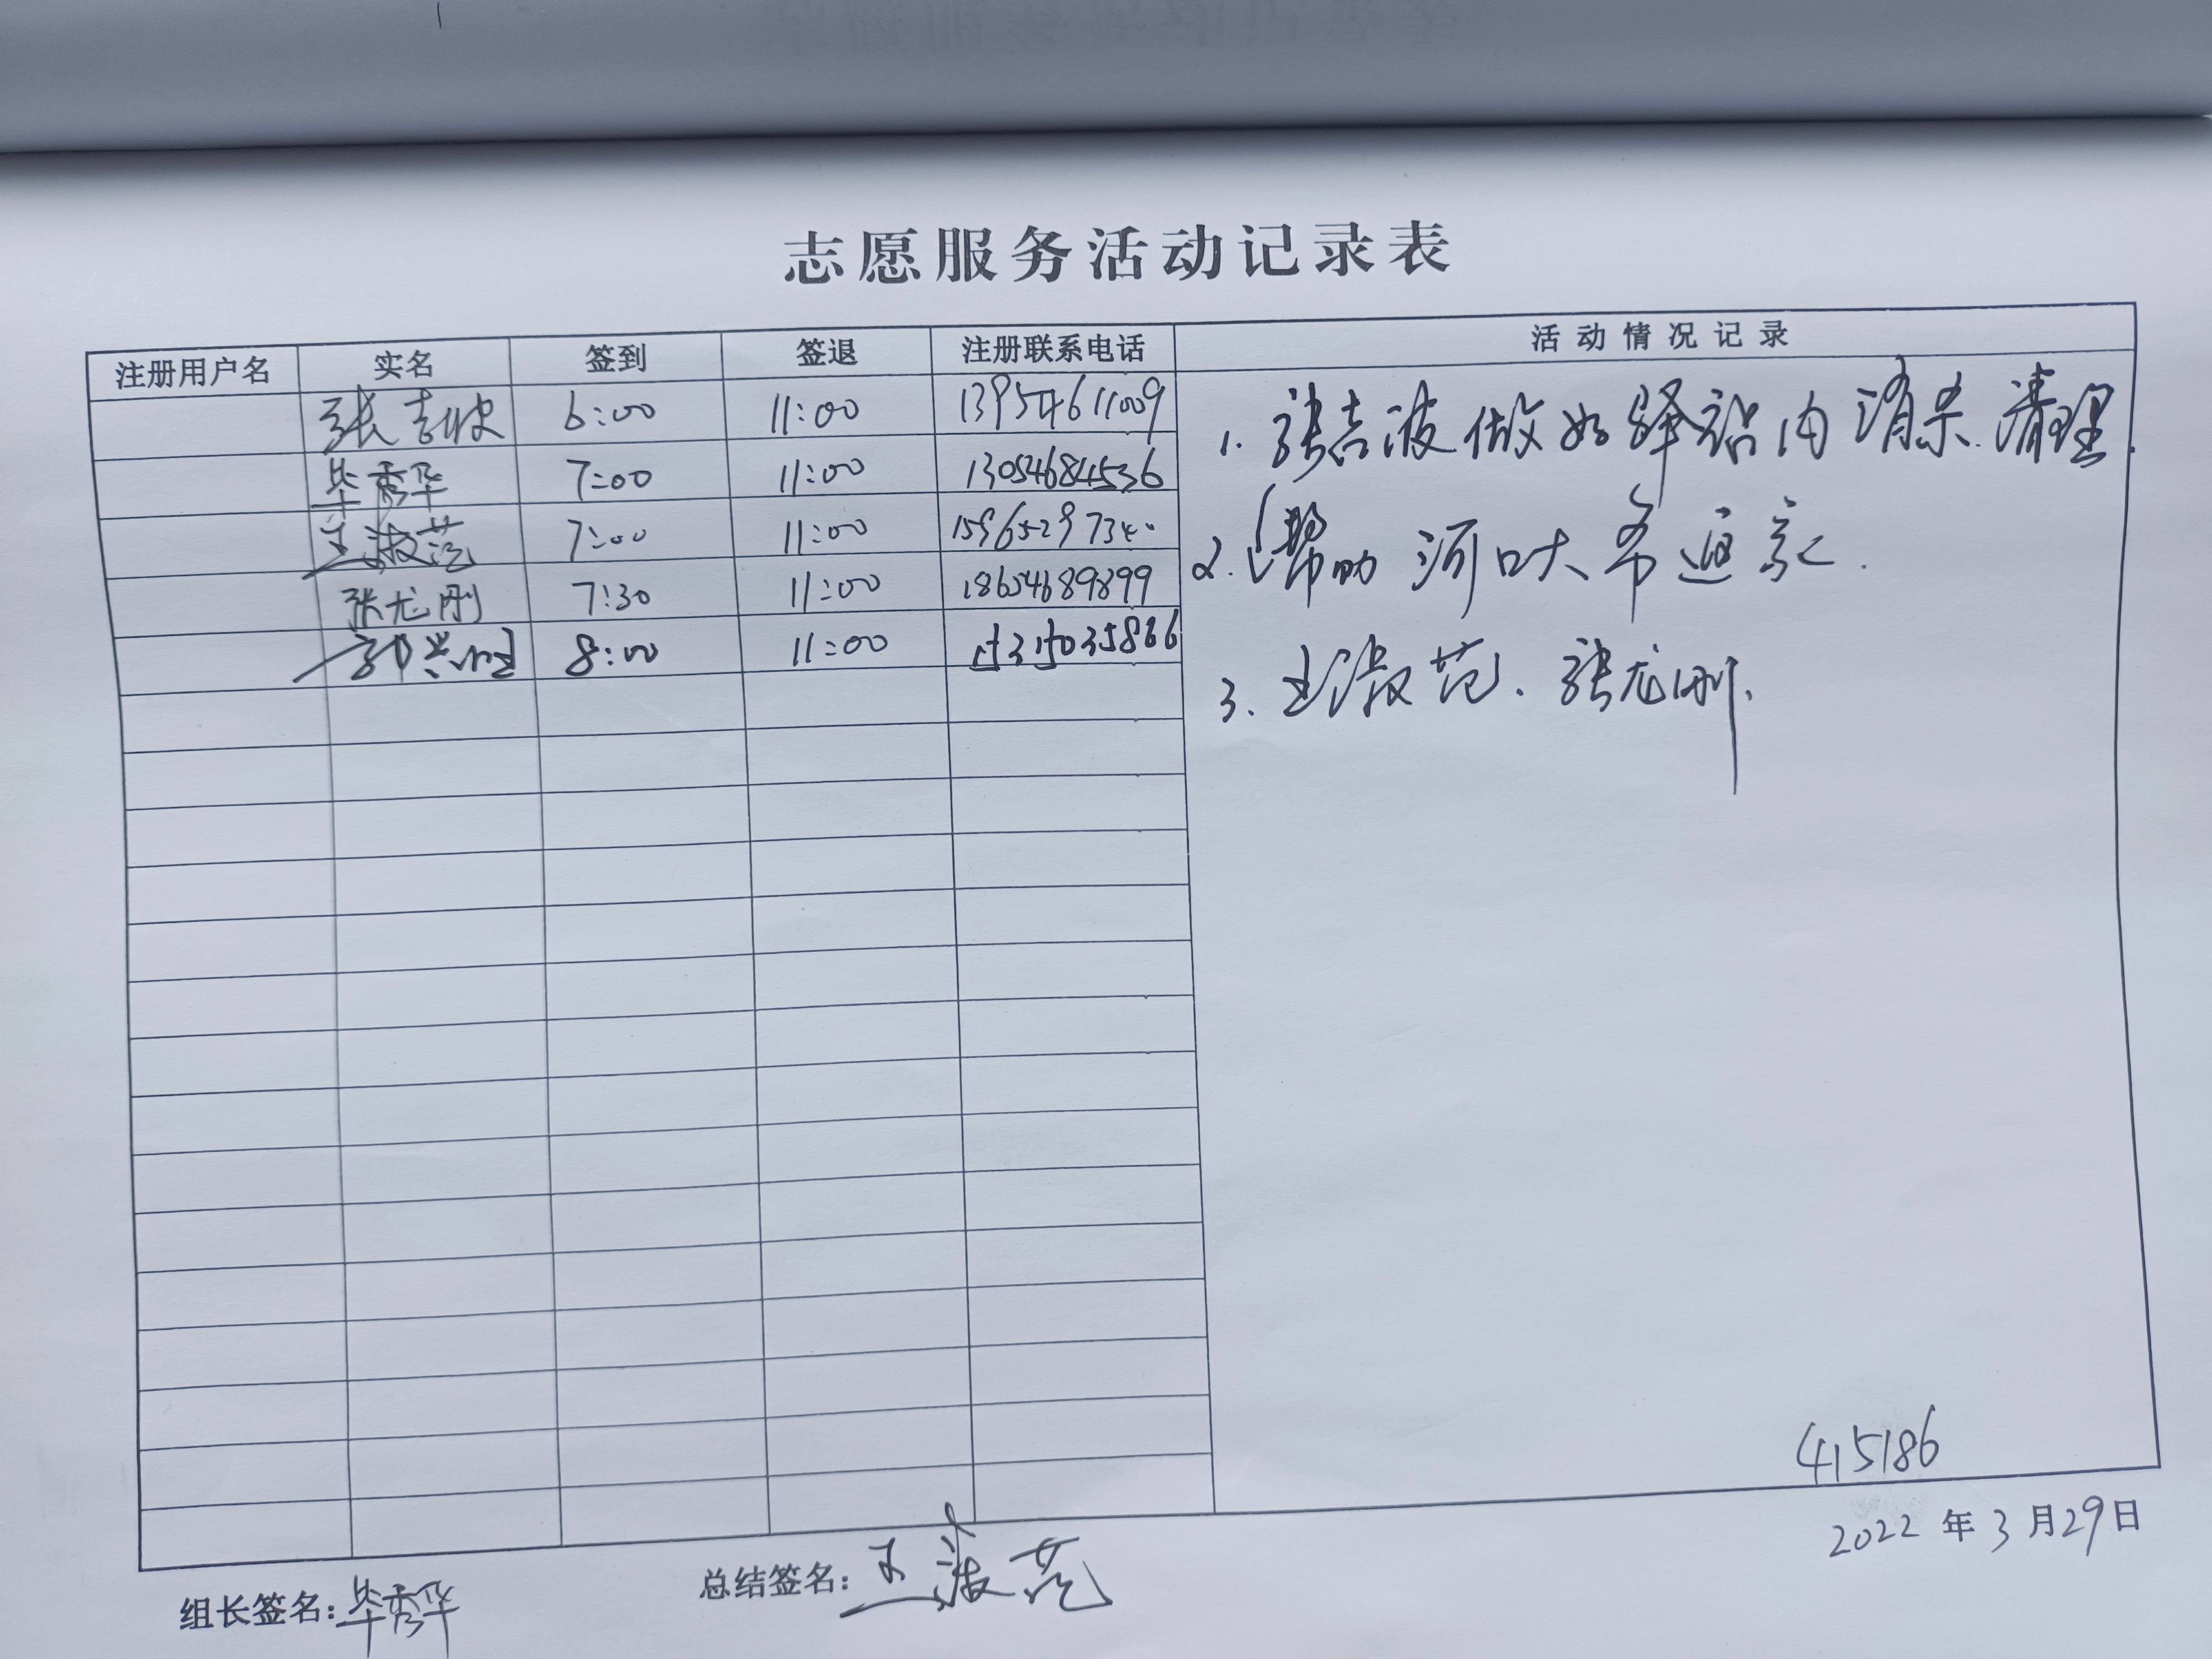 志愿服务活动记录表
注册用户名 实名 签到 签退 注册联系电话 活动情况记录
张吉波 6:00 11:00 13954611009
毕秀华 7:00 11:00 13054684536
王淑范 7:00 11:00
张尤刚 7:30 11:00 18654689899
8:00 11:00
1. 张吉波做好驿站内消杀.清理.
2. 帮助河口大爷返家.
3. 王淑范、张尤刚、
415186
2022年3月29日
组长签名:毕秀华 总结签名:王淑范